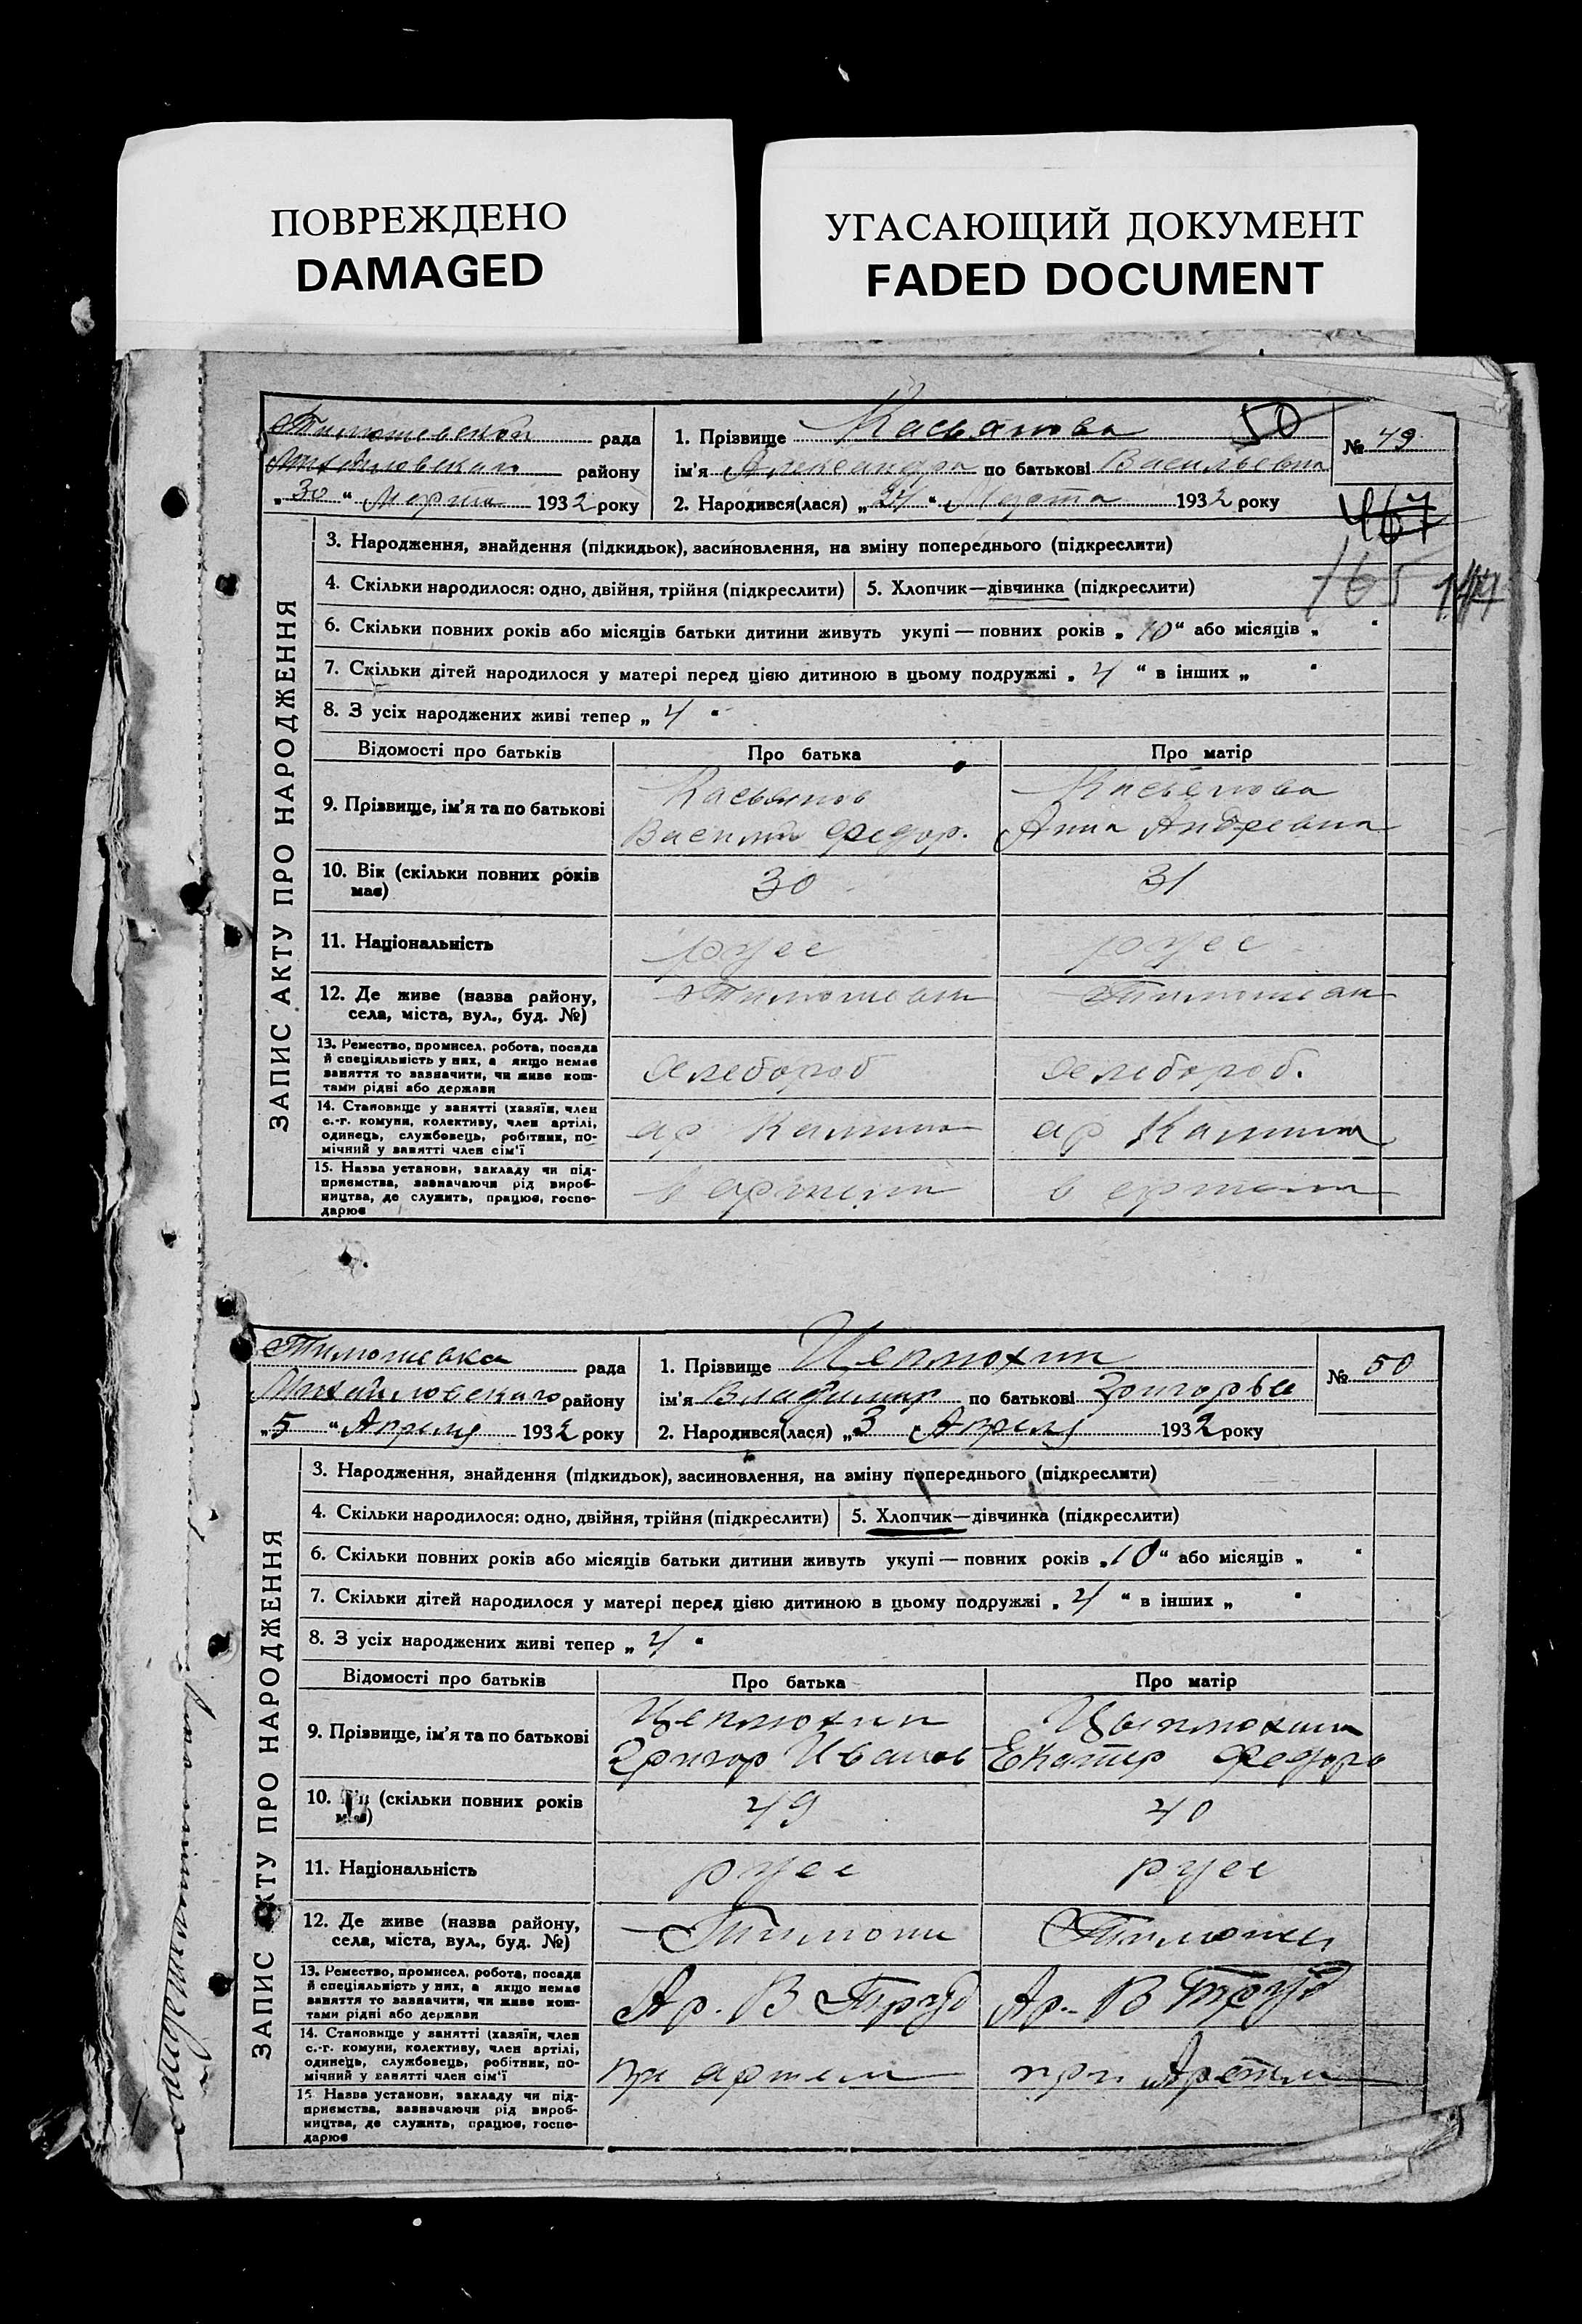 ПОВРЕЖДЕНО
DAMAGED
УГАСАЮЩИЙ ДОКУМЕНТ
FADED DOCUMENT
Тимошевской рада
району
„30“ Марта 1932 року
1. Прізвище Касьянова 50
ім'я Александра по батькові Васильевна
2. Народився(лася) „27“ Марта 1932 року
№ 49
467
165 144
ЗАПИС АКТУ ПРО НАРОДЖЕННЯ
3. Народження, знайдення (підкидьок), засиновлення, на зміну попереднього (підкреслити)
4. Скільки народилося: одно, двійня, трійня (підкреслити) 5. Хлопчик—дівчинка (підкреслити)
6. Скільки повних років або місяців батьки дитини живуть укупі — повних років „10“ або місяців „ “
7. Скільки дітей народилося у матері перед цією дитиною в цьому подружжі „4“ в інших „ “
8. З усіх народжених живі тепер „4“
Відомості про батьків Про батька Про матір
9. Прізвище, ім'я та по батькові
Касьянов
Василий Федор.
Касьянова
Анна Андреевна
10. Вік (скільки повних років має) 30 31
11. Національність русс русс
12. Де живе (назва району, села, міста, вул., буд. №)
13. Ремество, промисел, робота, посада й спеціяльність у них, а якщо немає заняття то зазначити, чи живе коштами рідні або держави
14. Становище у занятті (хазяїн, член с.-г. комуни, колективу, член артілі, одинець, службовець, робітник, помічний у занятті член сім'ї
ар Калинина ар Калинина
15. Назва установи, закладу чи підприємства, зазначаючи рід виробництва, де служить, працює, господарює
в артели в артели
Тимошевка рада
Михайловского району
„5“ Апреля 1932 року
1. Прізвище Цеплюхин
ім'я Владимир по батькові Григорьев
2. Народився(лася) „3“ Апреля 1932 року
№ 50
ЗАПИС АКТУ ПРО НАРОДЖЕННЯ
3. Народження, знайдення (підкидьок), засиновлення, на зміну попереднього (підкреслити)
4. Скільки народилося: одно, двійня, трійня (підкреслити) 5. Хлопчик—дівчинка (підкреслити)
6. Скільки повних років або місяців батьки дитини живуть укупі — повних років „10“ або місяців „ “
7. Скільки дітей народилося у матері перед цією дитиною в цьому подружжі „4“ в інших „ “
8. З усіх народжених живі тепер „4“
Відомості про батьків Про батька Про матір
9. Прізвище, ім'я та по батькові
Цеплюхин
Григор Иванов
Цыплюхина
Екатер Федоро
10. (скільки повних років має) 49 40
11. Національність русс русс
12. Де живе (назва району, села, міста, вул., буд. №) Тимоши Тимоши
13. Ремество, промисел, робота, посада й спеціяльність у них, а якщо немає заняття то зазначити, чи живе коштами рідні або держави
Ар. В Труд Ар. В Труд
14. Становище у занятті (хазяїн, член с.-г. комуни, колективу, член артілі, одинець, службовець, робітник, помічний у занятті член сім'ї
артели при Артели
15. Назва установи, закладу чи підприємства, зазначаючи рід виробництва, де служить, працює, господарює